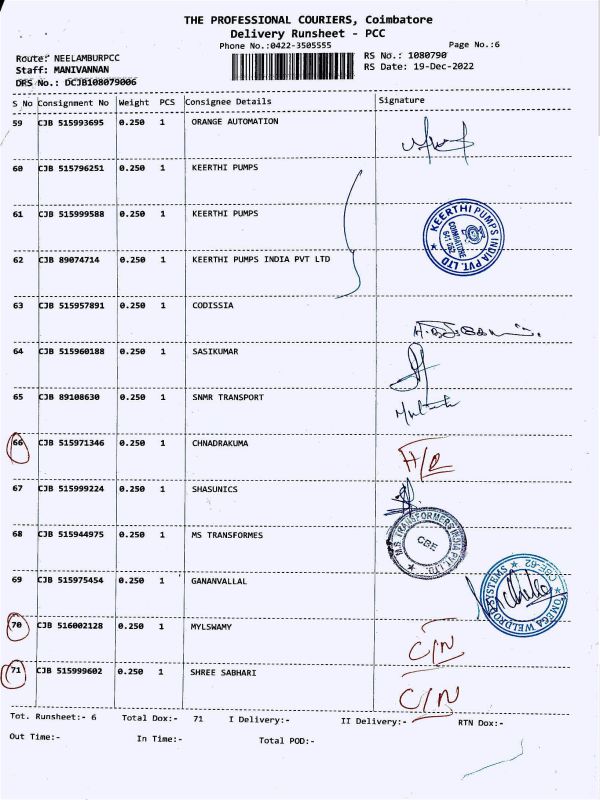 THE PROFESSIONAL COURIERS, Coimbatore
Delivery Runsheet - PCC
Phone No.:0422-3505555
Page No.:6
Route: NEELAMBURPCC
RS No.: 1080790
Staff: MANIVANNAN
RS Date: 19-Dec-2022
DRS No.: DCJB108079006
S No Consignment No Weight PCS Consignee Details Signature
59 CJB 515993695 0.250 1 ORANGE AUTOMATION
60 CJB 515796251 0.250 1 KEERTHI PUMPS
61 CJB 515999588 0.250 1 KEERTHI PUMPS
KEERTHI PUMPS INDIA PVT. LTD ★
COIMBATORE
641 062
62 CJB 89074714 0.250 1 KEERTHI PUMPS INDIA PVT LTD
63 CJB 515957891 0.250 1 CODISSIA
64 CJB 515960188 0.250 1 SASIKUMAR
65 CJB 89108630 0.250 1 SNMR TRANSPORT
66 CJB 515971346 0.250 1 CHNADRAKUMA
67 CJB 515999224 0.250 1 SHASUNICS
68 CJB 515944975 0.250 1 MS TRANSFORMES
M.S. TRANSFORMERS INDIA PVT. LTD. ★
CBE
69 CJB 515975454 0.250 1 GANANVALLAL
★ OMEGA WELDROF SYSTEMS ★ CBE-62
70 CJB 516002128 0.250 1 MYLSWAMY C/N
71 CJB 515999602 0.250 1 SHREE SABHARI C/N
Tot. Runsheet:- 6 Total Dox:- 71 I Delivery:- II Delivery:- RTN Dox:-
Out Time:- In Time:- Total POD:-